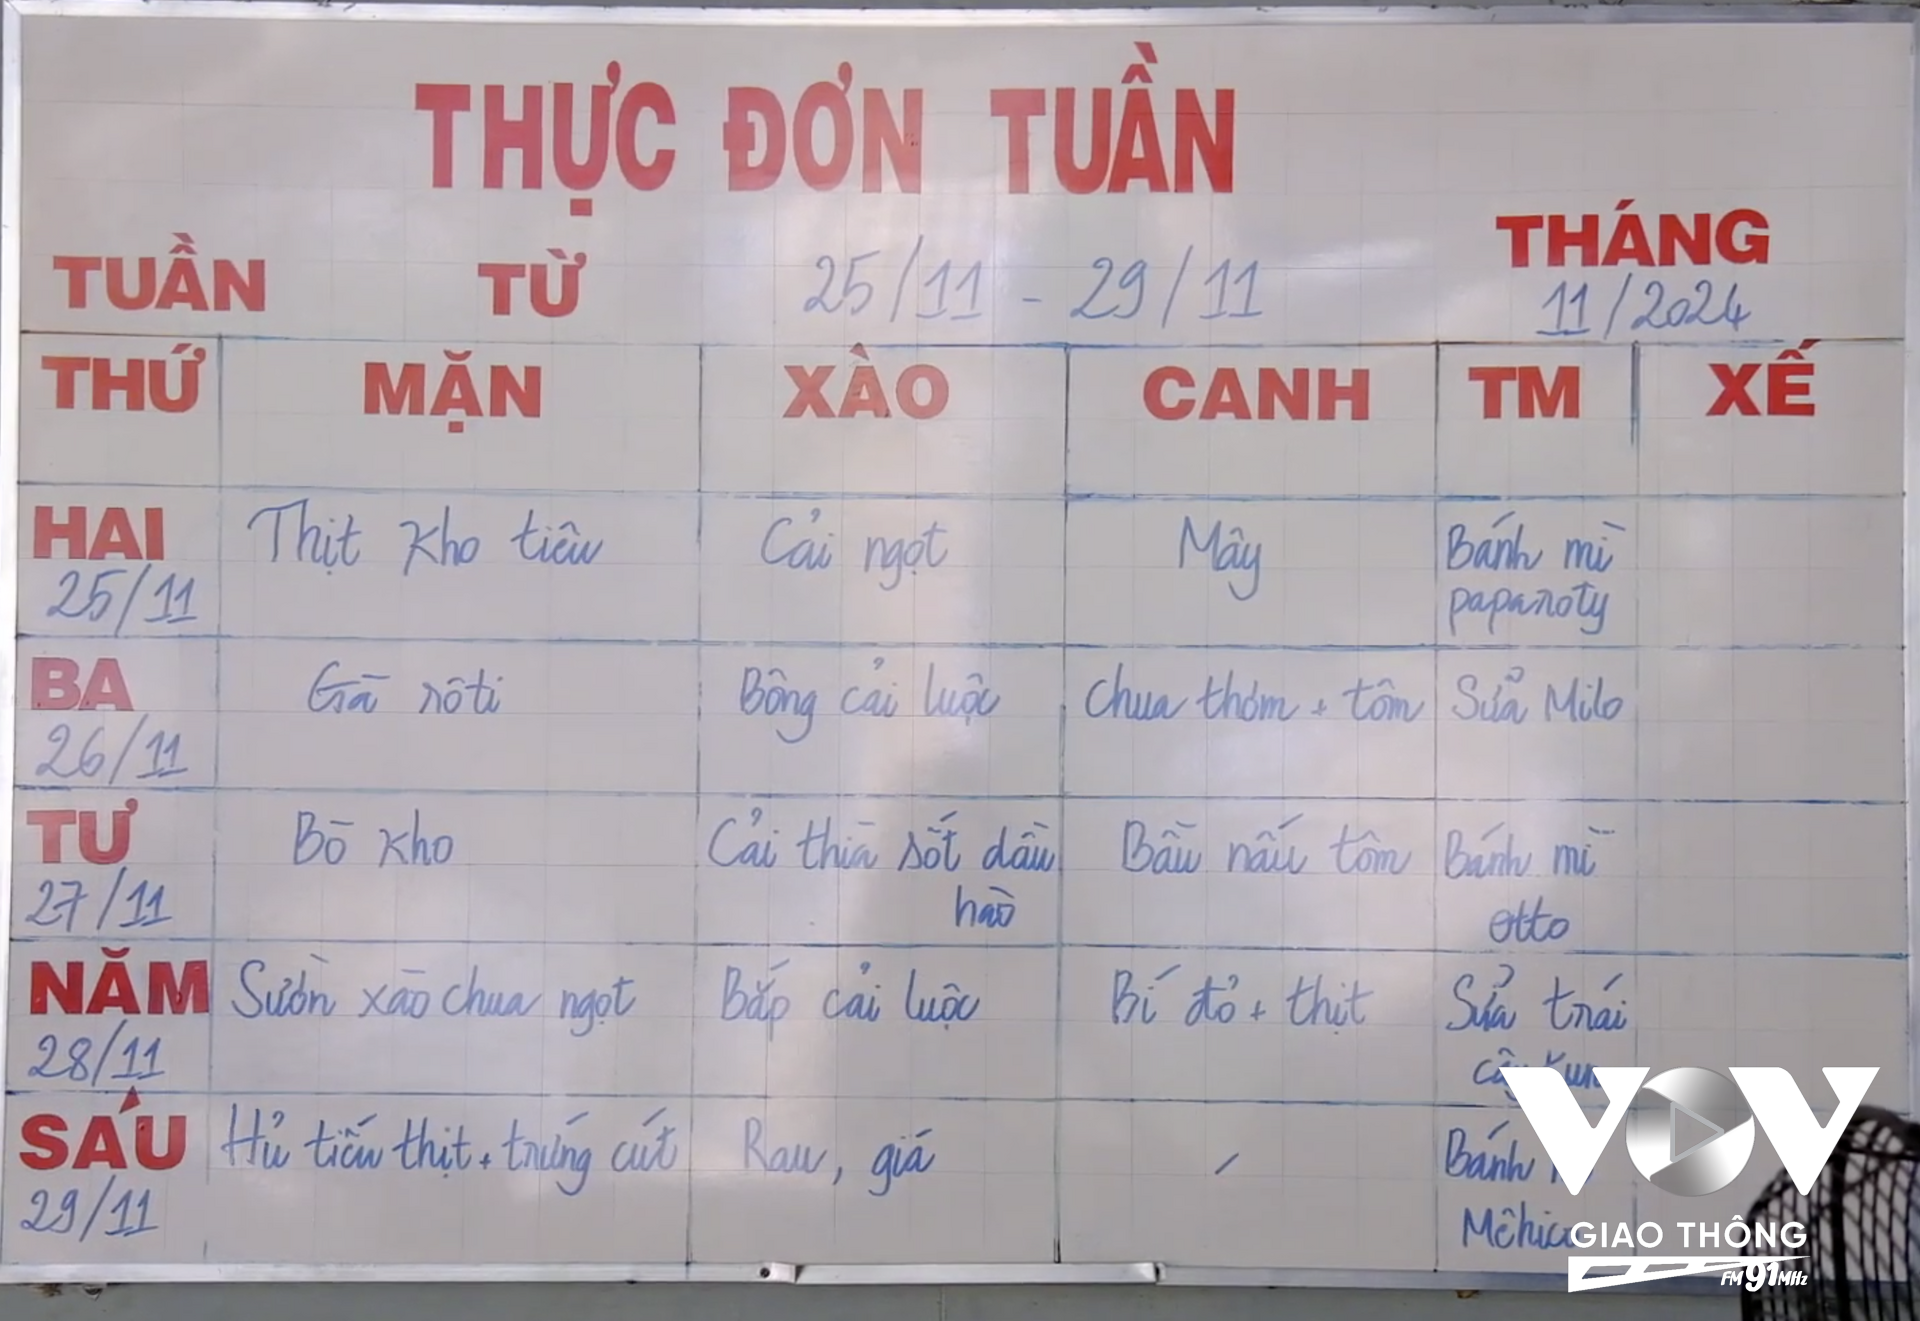 THỰC ĐƠN TUẦN
TUẦN TỪ 25/11 - 29/11 THÁNG
11/2024
THỨ MẶN XÀO CANH TM XẾ
HAI Thịt kho tiêu Cải ngọt Mây Bánh mì
25/11 paparoty
BA Gà rôti Bông cải luộc Chua thơm + tôm Sữa Milo
26/11
TƯ Bò kho Cải thìa sốt dầu Bầu nấu tôm Bánh mì
27/11 hào otto
NĂM Sườn xào chua ngọt Bắp cải luộc Bí đỏ + thịt Sữa trái
28/11 cây
SÁU Hủ tiếu thịt + trứng cút Rau, giá / Bánh
29/11
VOV
GIAO THÔNG
FM 91 MHz